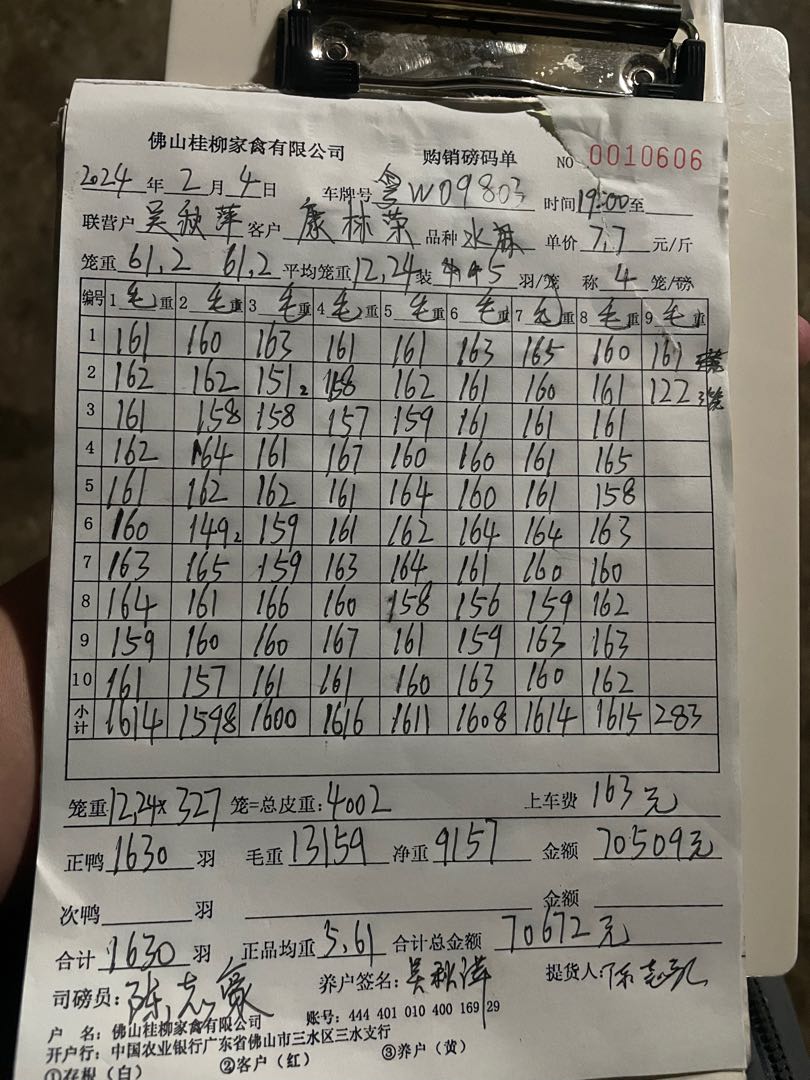 佛山桂柳家禽有限公司 购销磅码单 NO 0010606
2024 年 2 月 4 日 车牌号 粤W09803 时间 19:00 至
联营户 吴秋萍 客户 康林荣 品种 水麻 单价 7,7 元/斤
笼重 61,2 61,2 平均笼重 12,24 装 5 羽/笼 称 4 笼/磅
编号 1 毛重 2 毛重 3 毛重 4 毛重 5 毛重 6 毛重 7 毛重 8 毛重 9 毛重
1 161 160 163 161 161 163 165 160 161
2 162 162 151 2 158 162 161 160 161 122
3 161 158 158 157 159 161 161 161
4 162 164 161 167 160 160 161 165
5 161 162 162 161 164 160 161 158
6 160 149 2 159 161 162 164 164 163
7 163 165 159 163 164 161 160 160
8 164 161 166 160 158 156 159 162
9 159 160 160 167 161 159 163 163
10 161 157 161 161 160 163 160 162
小计 1614 1598 1600 1616 1611 1608 1614 1615 283
笼重 12,24× 327 笼=总皮重: 4002 上车费 163元
正鸭 1630 羽 毛重 13159 净重 9157 金额 70509元
次鸭 羽 金额
合计 1630 羽 正品均重 5,61 合计总金额 70672元
司磅员: 陈志豪 养户签名: 吴秋萍 提货人: 陈志
户 名: 佛山桂柳家禽有限公司 账号: 444 401 010 400 169 29
开户行: 中国农业银行广东省佛山市三水区三水支行
①存根(白) ②客户(红) ③养户(黄)